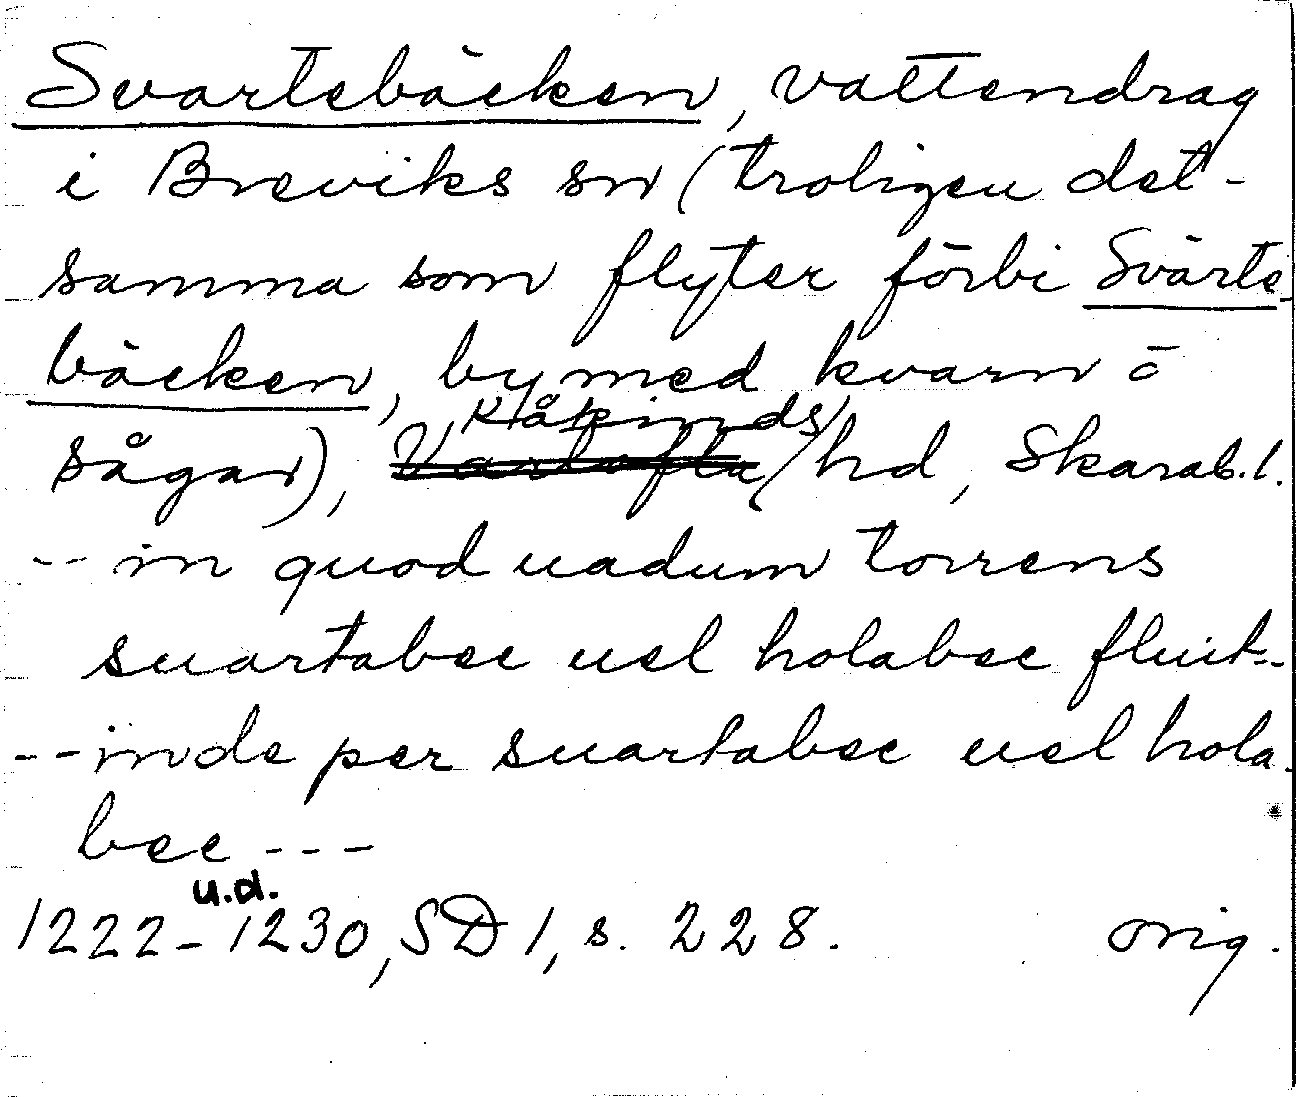 Svartebäcken, vattendrag
i Breviks sn (troligen det-
samma som flyter förbi Svarte
bäcken, by med kvarn o
Kåkinds
sågar), Vartofta/hd, Skarab.l.
-- in quod uadum torrens
suartabec uel holabec fluit--
-- inde per suartabec uel hola
bec ---
u.d.
1222-1230, SD 1, s. 228. orig.